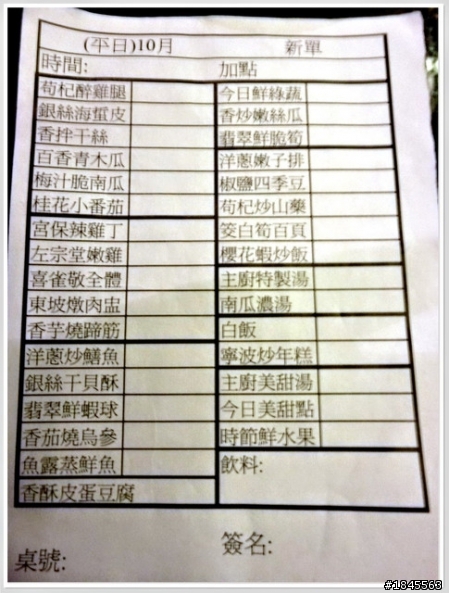 (平日)10月 新單
時間: 加點
荀杞醉雞腿 今日鮮綠蔬
銀絲海蜇皮 香炒嫩絲瓜
香拌干絲 翡翠鮮脆筍
百香青木瓜 洋蔥嫩子排
梅汁脆南瓜 椒鹽四季豆
桂花小番茄 荀杞炒山藥
宮保辣雞丁 筊白筍百頁
左宗堂嫩雞 櫻花蝦炒飯
喜雀敬全體 主廚特製湯
東坡燉肉盅 南瓜濃湯
香芋燒蹄筋 白飯
洋蔥炒鱔魚 寧波炒年糕
銀絲干貝酥 主廚美甜湯
翡翠鮮蝦球 今日美甜點
香茄燒烏參 時節鮮水果
魚露蒸鮮魚 飲料:
香酥皮蛋豆腐
桌號: 簽名:
#1845563